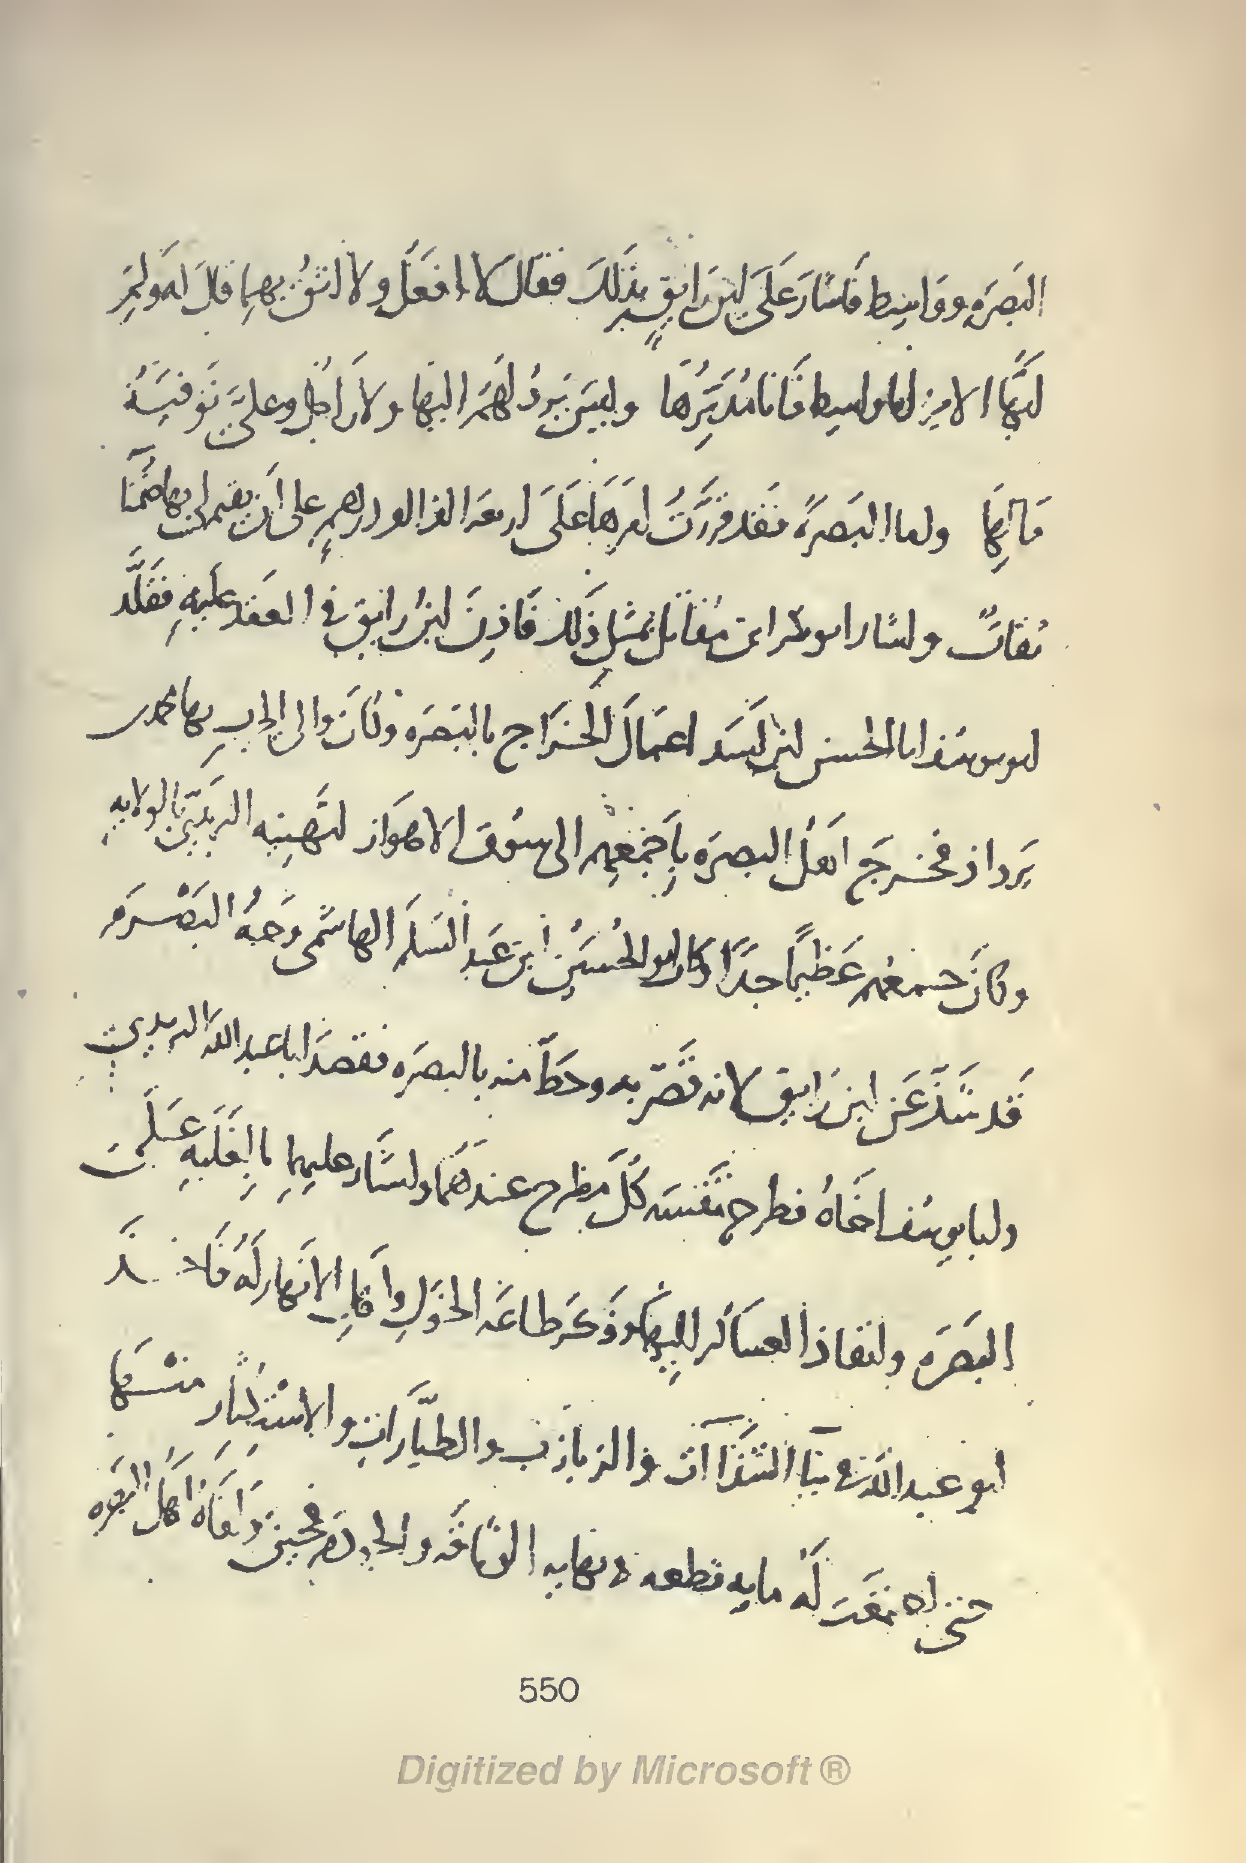 البَصرَه ووَاسِط فَاشارَ عَلَى ابن رَايقٍ بذَلكَ فقالَ لا افعَلُ ولا اثقُ بهِما قالَ له ولِمَ
ايّها الامِيرُ اما واسِط فَانا مُدَبِّرُهَا وليسَ يَردُ لهُمَ اليَها ولا رَاجلٌ وعَلىّ تَوفيَةُ
مَالِهَا واما البَصرَةُ فقَد قَرَّرتُ امرَهَا عَلَى اربعَه الف الف درهمٍ على ان يقيم لى بها ضُمنَا
ثقاتٌ واشار ابو بكر ابن مقاتل بمثلِ ذَلك فَاذِنَ ابنُ رايق فى العَقد عليهِ فقَلَّد
ابو يوسُف ابا الحسن ابن اَسَد اعمَالَ الخرَاج بالبَصرَه وكَانَ والى الحَرب بها محمد بن
يَزداذ فخرجَ اهلُ البصرَه بِاَجمَعِهِم الى سُوقِ الاهوَاز لتَهنِيه البَريدِيّ بالولايهِ
وكانَ جمعُهم عَظيمًا جدًا وكان ابو الحُسَينِ ابن عَبد السَلم الهاشمى وَجهُ البَصْرَه
قَد شذَّ عَن ابن رَايق لانه قَصّر به وحَطَّ منه بالبصرَه فقصَدَ ابا عبد الله البريدى
وابا يوسُف اخَاهُ فطرح نَفسَه كُلَّ مَطرحٍ عندهُمَا واشَار عليهِما بِالغَلبَهِ عَلَى
البَصرَه وانفاذ العسَاكر اليها وذكَر طاعَه الخوَلِ وامَاتِ الانهار لَهُ فَاخذَ
ابو عبد الله فى بنَا الشَذَاآت والزبازب والطيَّاراتِ والاسْتِكثَار منْهَا
حتى اجتمعَت لَهُ مايه قطعه فى نهايه الوثَاقَه والجودَه فحينَ وَافَاهُ اهلُ البَصرَه
550
Digitized by Microsoft ®